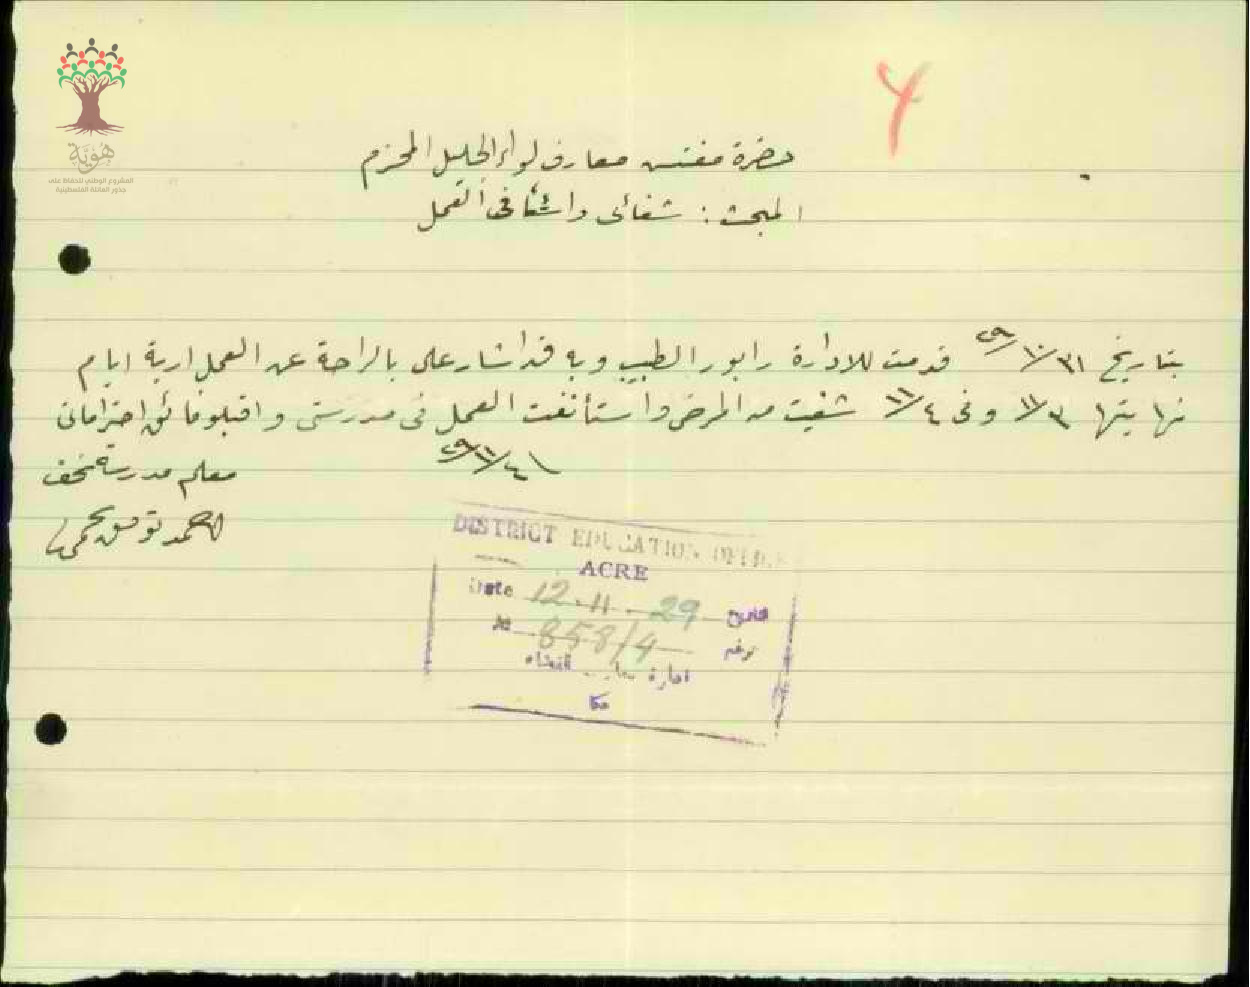 هوية
المشروع الوطني للحفاظ على
جذور العائلة الفلسطينية
٢
حضرة مفتش معارف لواء الجليل المحترم
المبحث : شفائي واستئنافي العمل
بتاريخ ٣١/١٠/٢٩ قدمت للادارة رابور الطبيب وبه قد اشار علي بالراحة عن العمل اربعة ايام
نهايتها ٣/١١ وفي ٤/١١ شفيت من المرض واستأنفت العمل في مدرستي واقبلوا فائق احتراماتي
٤/١١/٢٩
معلم مدرسة سخف
احمد توفيق
DISTRICT EDUCATION OFFICE
ACRE
Date 12.11.29 التاريخ
No 858/4 نمره
ادارة معارف القضاء
عكا